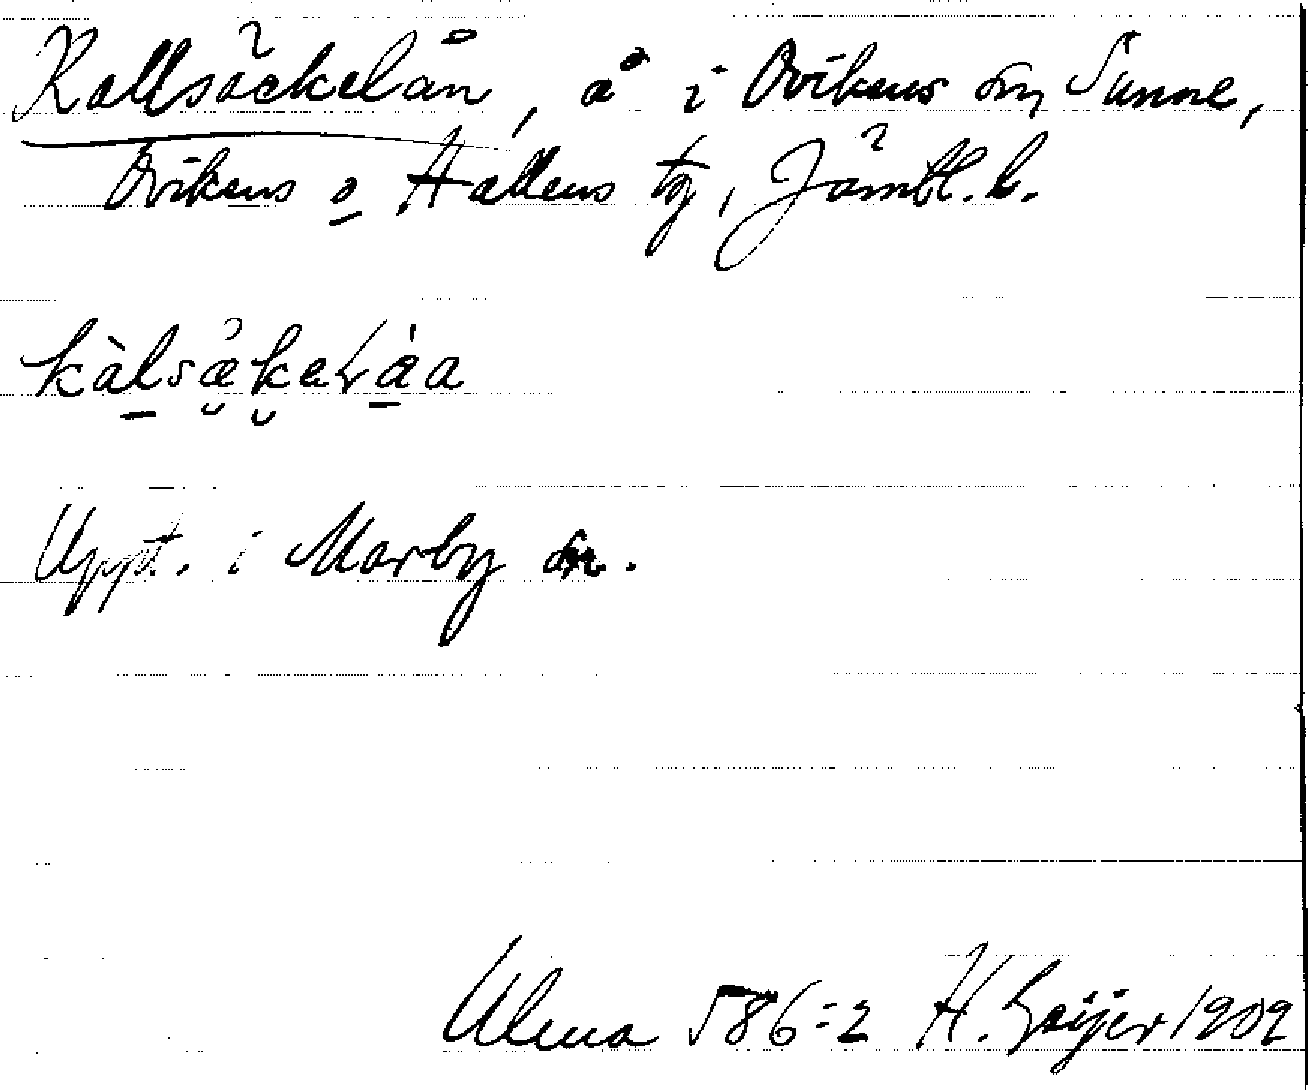 Kallsäckelån, å i Ovikens sn, Sunne,
Ovikens o Hallens tg, Jämtl. l.
kàlsækeɽáa
Uppt. i Marby sn.
Ulma 586:2 H. Geijer 1909